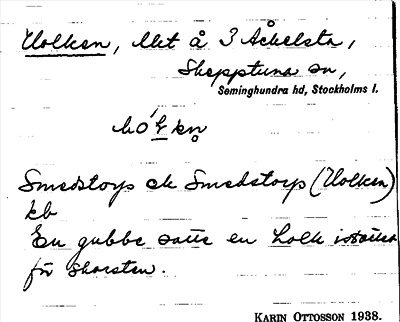 Holken, lht å 3 Åkelsta,
Skepptuna sn,
Seminghundra hd, Stockholms l.
hól̥kn̥
Smedstorp ek Smedstorp (Holken)
kb
En gubbe satte en holk istället
för skorsten.
KARIN OTTOSSON 1938.